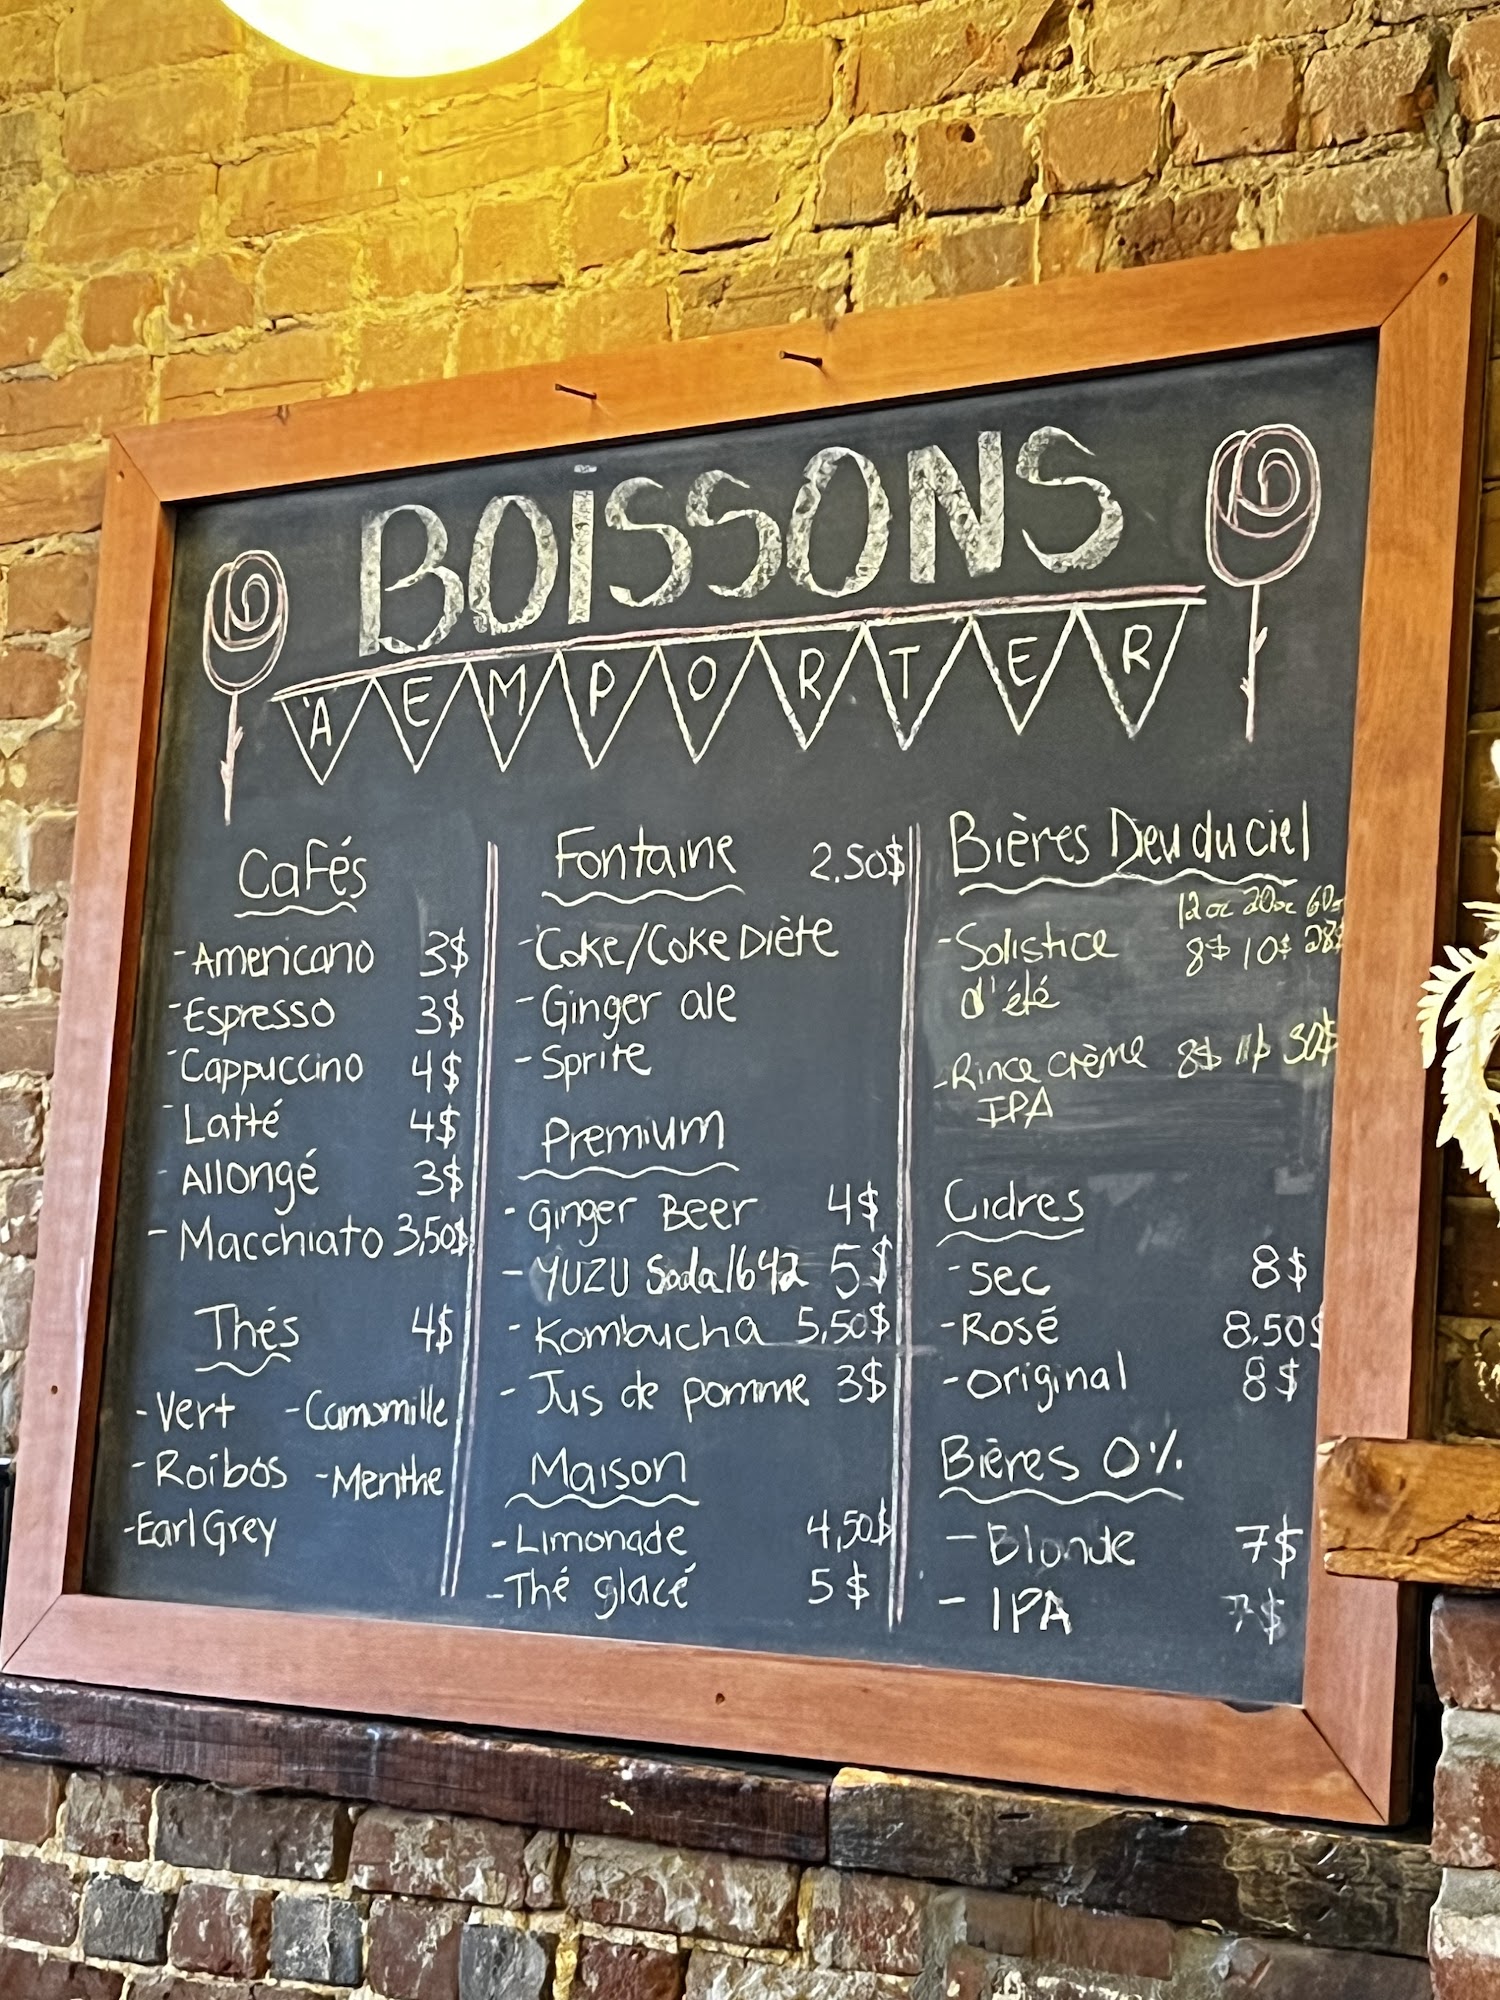 BOISSONS
À EMPORTER
Cafés
- Americano 3$
- Espresso 3$
- Cappuccino 4$
- Latté 4$
- Allongé 3$
- Macchiato 3,50$
Thés 4$
- Vert - Camomille
- Roibos - Menthe
- Earl Grey
Fontaine 2.50$
- Coke/Coke Diète
- Ginger ale
- Sprite
Premium
- Ginger Beer 4$
- YUZU Soda/642 5$
- Kombucha 5,50$
- Jus de pomme 3$
Maison
- Limonade 4,50$
- Thé glacé 5$
Bières Dieu du ciel
12oz 20oz 60oz
- Solistice 8$ 10$ 28$
d'été
- Rince crème 8$ 11$ 30$
IPA
Cidres
- Sec 8$
- Rosé 8.50$
- Original 8$
Bières 0%
- Blonde 7$
- IPA 7$